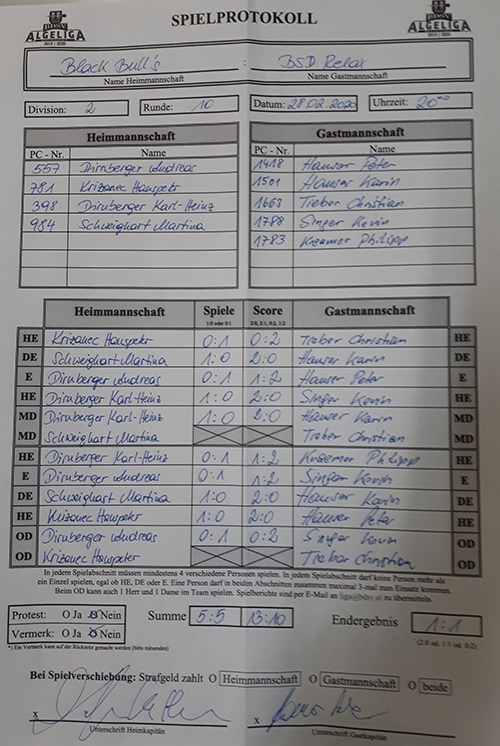 ALGELIGA
2019 | 2020
SPIELPROTOKOLL
ALGELIGA
2019 | 2020
Black Bull's : BSD Relax
Name Heimmannschaft Name Gastmannschaft
Division: 2 Runde: 10 Datum: 28.02.2020 Uhrzeit: 20⁰⁰
Heimmannschaft Gastmannschaft
PC - Nr. Name PC - Nr. Name
557 Dirnberger Andreas 1418 Hauser Peter
781 Krizanec Hanspeter 1501 Hauser Karin
398 Dirnberger Karl-Heinz 1663 Treber Christian
984 Schweighart Martina 1788 Singer Kevin
1783 Kraemer Philipp
Heimmannschaft Spiele Score Gastmannschaft
1:0 oder 0:1 2:0, 2:1, 0:2, 1:2
HE Krizanec Hanspeter 0:1 0:2 Treber Christian HE
DE Schweighart Martina 1:0 2:0 Hauser Karin DE
E Dirnberger Andreas 0:1 1:2 Hauser Peter E
HE Dirnberger Karl-Heinz 1:0 2:0 Singer Kevin HE
MD Dirnberger Karl-Heinz 1:0 2:0 Hauser Karin MD
MD Schweighart Martina Treber Christian MD
HE Dirnberger Karl-Heinz 0:1 1:2 Kraemer Philipp HE
E Dirnberger Andreas 0:1 1:2 Singer Kevin E
DE Schweighart Martina 1:0 2:0 Hauser Karin DE
HE Krizanec Hanspeter 1:0 2:0 Hauser Peter HE
OD Dirnberger Andreas 0:1 0:2 Singer Kevin OD
OD Krizanec Hanspeter Treber Christian OD
In jedem Spielabschnitt müssen mindestens 4 verschiedene Personen spielen. In jedem Spielabschnitt darf keine Person mehr als
ein Einzel spielen, egal ob HE, DE oder E. Eine Person darf in beiden Abschnitten zusammen maximal 3-mal zum Einsatz kommen.
Beim OD kann auch 1 Herr und 1 Dame im Team spielen. Spielberichte sind per E-Mail an zu übermitteln.
Protest: O Ja O Nein Summe 5:5 13:10 Endergebnis 1:1
Vermerk: O Ja O Nein (2:0 od. 1:1 od. 0:2)
*) Ein Vermerk kann auf der Rückseite gemacht werden (bitte ankreuzen)
Bei Spielverschiebung: Strafgeld zahlt O Heimmannschaft O Gastmannschaft O beide
x x
Unterschrift Heimkapitän Unterschrift Gastkapitän